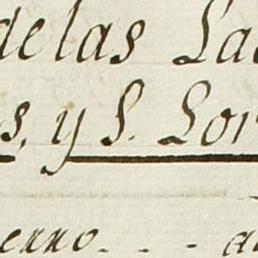 de las La
s, y S. Lor
erno. - - - a